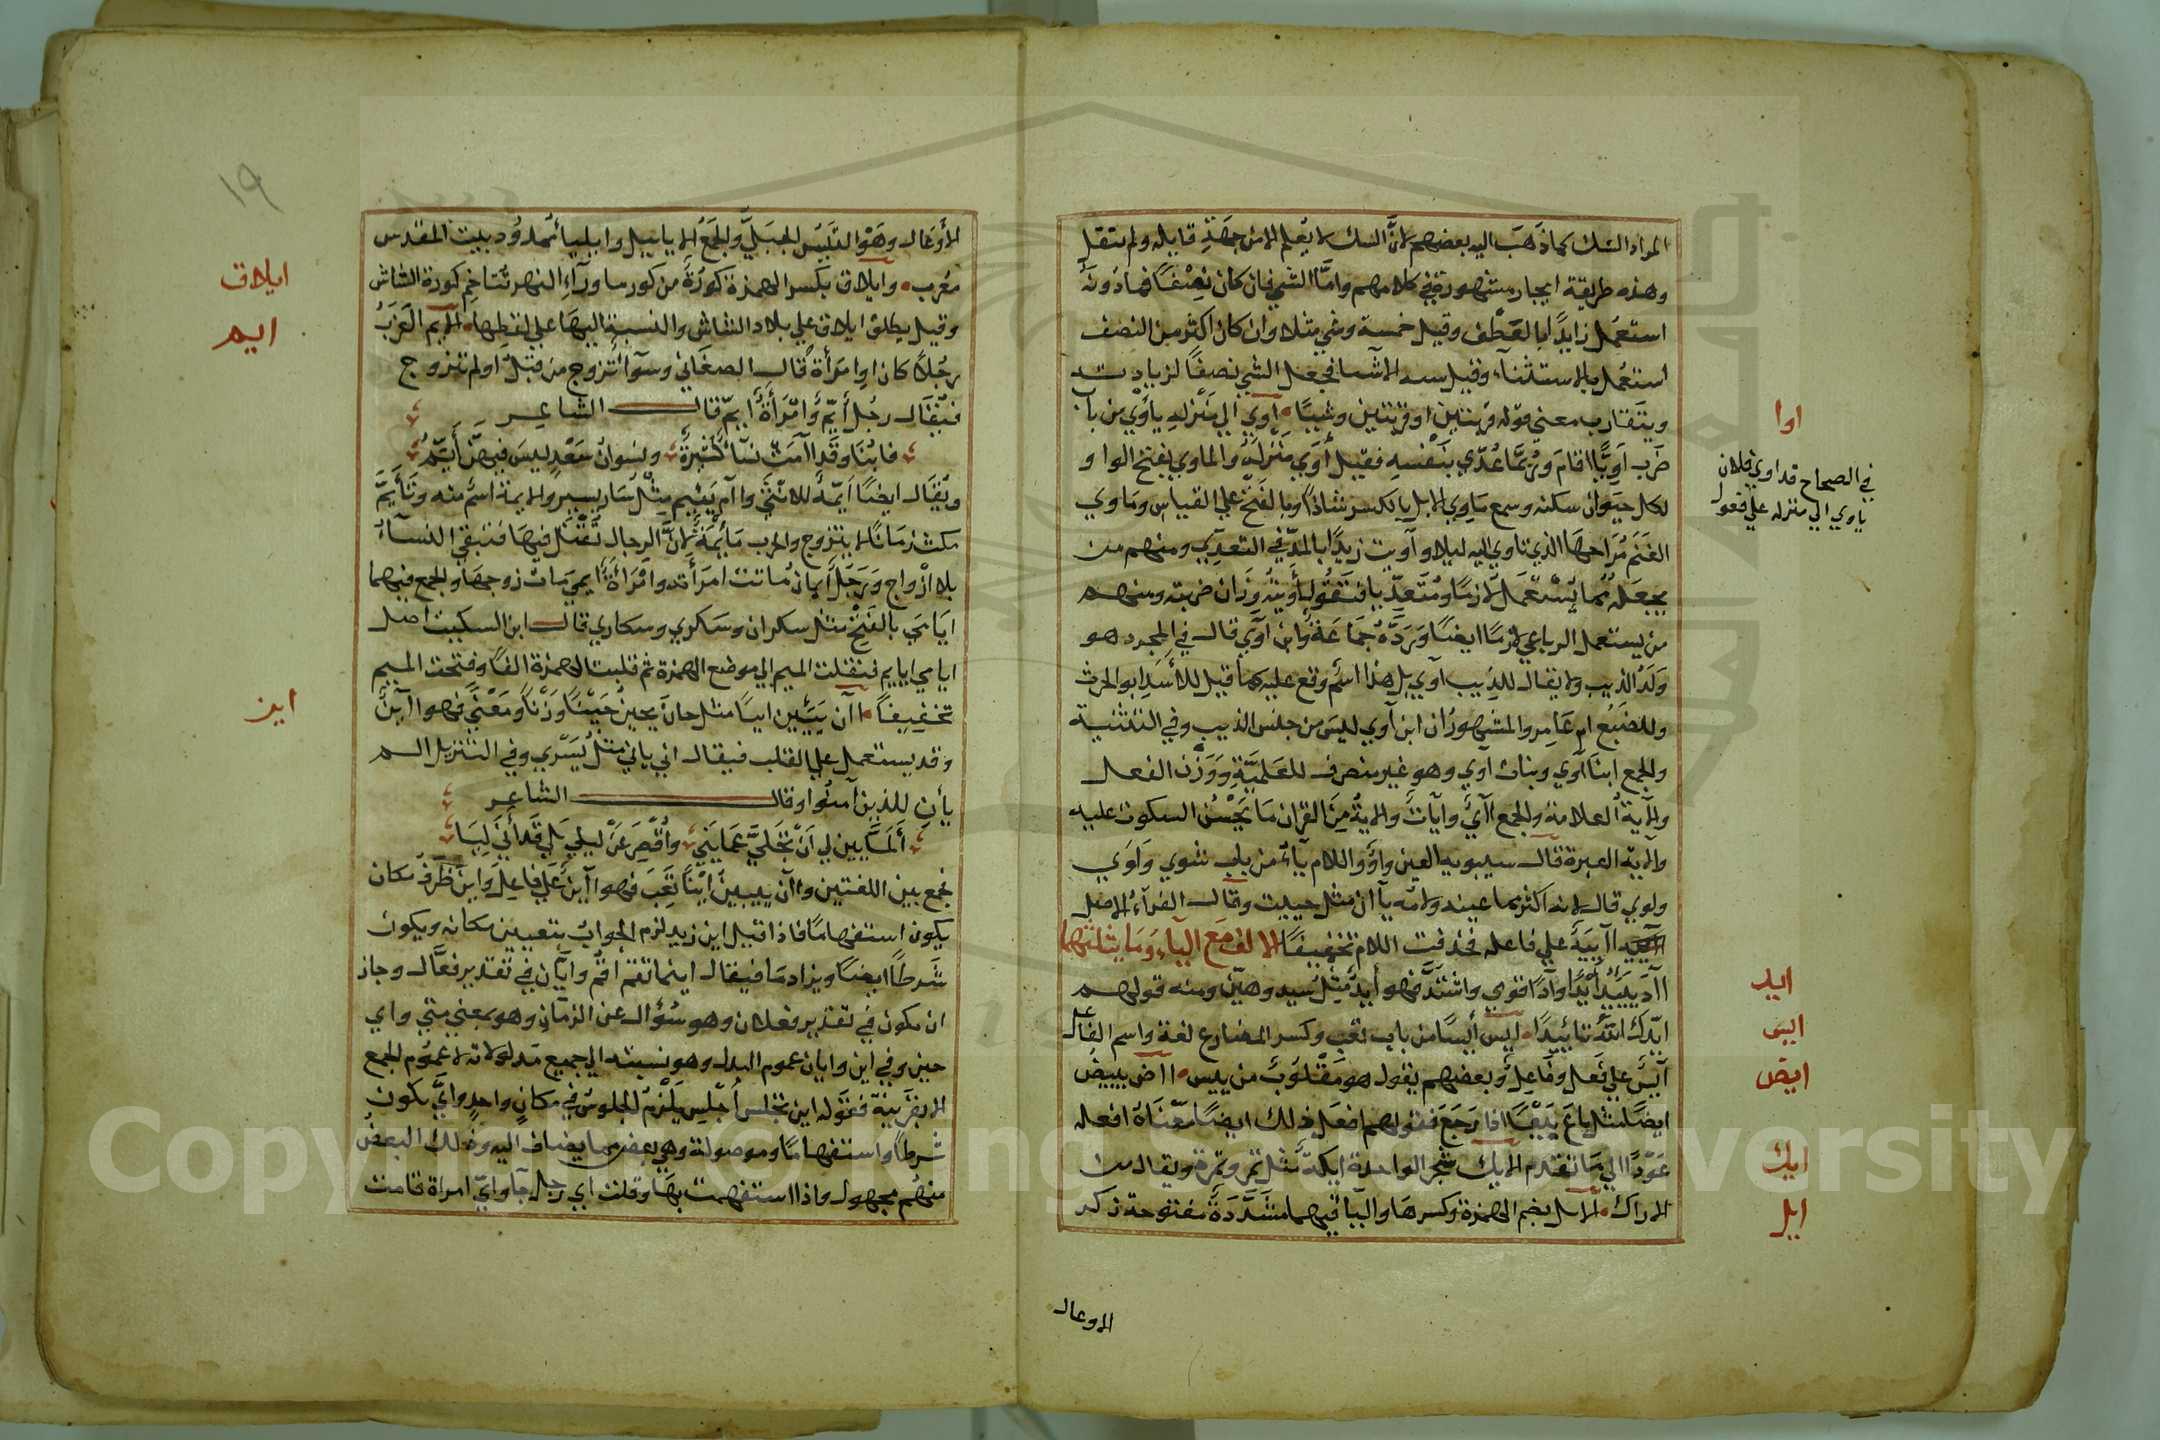 المراد الشك كما ذهب اليه بعضهم لانَّ الشك لا يعلم الا من جهة قايله ولم ينقل
وهذه طريقة ايجاز مشهورة في كلامهم وامَّا الشي فان كان نِصْفًا فما دُونَهُ
استعمل زايدًا بالعَطْف وقيل خمسة وشي مثلا وان كان اكثر من النصف
استعمل بالاستثناء وقيل ستة الا شيا فجعل الشي نصفًا لزيادته
ويتقارب معني قوله قربتين او قربتين وشيئا اوي الي مَنْزله يَأوِي من باب
ضَرَب اَوِيًّا اقام ورُبمَّا عُدّي بنَفْسِه فقيل أوَي مَنْزلَهُ والماوي بفتح الواو
لكل حَيَوان سكنه وسمع مَاوِي الابل بالكسر شاذًا وبالفَتْح علي القياس ومَاوي
الغَنَم مُرَاحهَا الذي تاوي اليه ليلا وآويت زيدًا بالمدّ في التعدّي ومنهم من
يجعَله مما يُسْتَعْمَل لازمًا ومُتَعَدّيا فَتَقُول أَوَيْتُه وزَان ضربته ومنهم
من يستعمل الرباعي لازمًا ايضًا وَرَدَّهُ جمَاعَة وابْن آوَي قال في المجرد هو
وَلَدُ الذيب ولا يقال للذيب آوي بل هذا اسْم وقع عليه كما قيل للأسَد ابو الحرث
وللضَبُع ام عَامِر والمشهورُ ان ابن آوي ليسَ من جنس الذيب وفي التثنية
والجمع ابنا آوَي وبنات آوي وهو غير منصرف للعَلمِيَّةِ وَوَزْن الفعل
والآية العلامة والجمع آآي وآيَات والايةُ مِنَ القران مَا يَحْسُن السكوت عليه
والاية العبرة قال سيبويه العين واوٌ واللام يَاءٌ من باب شوي وَلَوَي
ولوي قال لانه اكثر مما عينه ولامه يآ ان مثل حييت وقال الفرآء الاصل
اآيِيَةٌ علي فاعله فحذفت اللام تخفيفًا الالف مَع الياء وَمَا يثلثهما
اآدَ يَئِيْدُ أَيْدًا وآدًا قوي واشتَدَّ فهو أَيدٌ مِثْل سَيد وهَيّن ومنه قولهم
ايّدك الله تَاييدًا ايس أيَسًا من باب تعب وكسر المضارع لغة واسم الفاعل
آيسٌ علي فَعِل وفَاعِل وبعضهم يقول هو مَقْلوبٌ من يئس اآض يييض
ايضًا مثل باعَ يَبِيْع بَيْعًا اذا رَجَعَ فقولهم افعَل ذلك ايضًا معْنَاهُ افعله
عَوْدًا الي مَا تقدم الايك شَجَر الواحدة ايكة مثل تمر وتمرة ويقال من
الاراك الايل بضم الهمزة وكسرهَا والياء فيهما مشَدَّدَةٌ مفتوحة ذكر
الاوعال
اوا
في الصحاح قد اوي فلان
ياوي الي منزله علي فعول
ايد
ايس
ايض
ايك
ايل
١٩
الأوعَال وهَوَ التَيْس الجبَليّ والجَمْع الاياييل وايلياءُ ممدُود بيت المقدس
مُعْرب وايلاق بكسر الهمزة كورَةٌ من كور ما ورآء النهر تُتَاخِم كورة الشاش
وقيل يطلق ايلاق علي بلاد الشاش والنسبة اليهَا علي لفظِها الايم العَزَبُ
رجُلاً كان او امرَأةً قال الصغَاني وسوآءٌ تزوج مِن قبْل اولم يتزوج
فيُقَال رجُل أَيّم وَامْرَأَةٌ ايّم قال الشاعر
فابْنَا وقد آمَتْ نسَاءٌ كَثيرةٌ ونِسْوانُ سَعْدٍ ليسَ فيهنَّ أيّمُ
ويُقَال ايضًا اَيّمةٌ للانْثَي وآم يَئِيم مِثْل سَار يسير والايمة اسْم منه وتأيَمَّ
مكث زمانًا لا يتزوج والحرب مَأيَمةٌ لانَّ الرجال تُقْتَل فيهَا فتبقي النسَآءُ
بلا ازْواج وَرَجُلٌ أيمانُ ماتت امرَأته وامْرَأةٌ أيمي مَات زوجهَا والجمع فيهما
ايَامَي بالفَتْح مثل سكران وسَكري وسكاري قال ابن السكيت اصل
ايامي ايايم فنقلت الميم الي موضع الهمزة ثم قلبت الهمزة الفًا وفتحت الميم
تخفِيفًا اآن يَئِين اينًا مثل حان يحين حَيْنًا وَزْنًا وَمَعْنًي فهو اآئنٌ
وقد يستعمل علي القلب فيقال اني ياني مثل يَسْري وفي التنزيل الم
يأنِ للذين آمنُوا وقال الشاعر
أَلَمَّا يَئن لي اَنْ تُجَلّيَ عمَايَتي واُقْصِرَ عَنْ ليلي بَلي قَد أَنَي لِيَا
فجمع بين اللغتين واآن يئين أيْنًا تَعِبَ فهو اآئنٌ علي فاعِل وَاينَ ظرْفُ مكان
يكون استفهامًا فاذا قيل اين زيد لزم الجوابُ بتعيين مكانه ويكون
شَرطًا ايضًا ويزاد مَا فيقال اينما تقم اقُم وايّان في تقدير فعَّال وجاز
ان يكون في تقدير فعلان وهو سُؤَال عن الزمان وهو بمعني متي واي
حين وفي اين وايان عموم البدل وهو نسبته الي جميع مَدلولاته لا عمُوم الجمع
الا بقَرينة فقَوله اين تجلس أَجْلِس يَلْزَمُ الجلوسُ في مكانٍ واحدٍ وأَيٌّ يكون
شرطًا واستفهامًا وموصولة وهي بعض ما يضاف اليه وذلك البعض
منهُم مجهول واذا استفهمت بهَا وقلت اي رجل جآ وايّ امراة قامت
ايلاق
ايم
اين